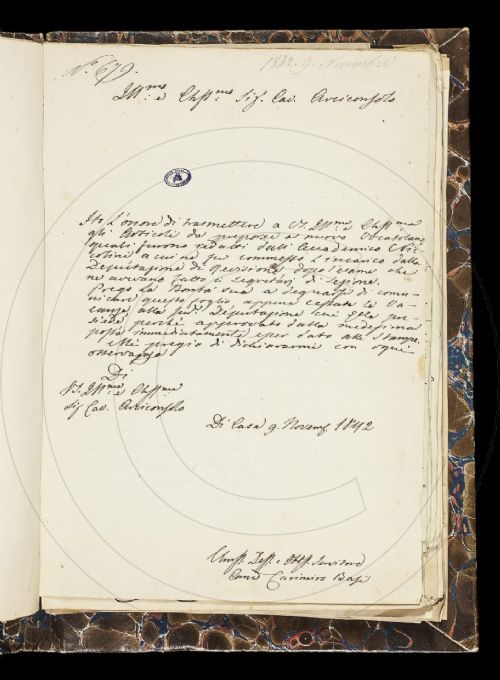 N.° 679.
1842. 9. Novembre
Ill.mo e Ch.mo Sig. Cav. Arciconsolo
Ho l'onore di trasmettere a V.S. Ill.ma e Ch.ma
gli Articoli da preporsi al nuovo Vocabolario
quali furono redatti dall' Accademico Nic-
colini a cui ne fu commesso l'incarico dalla
Deputazione di Revisione dopo l'esame che
ne avevano fatto i Segretari di Sezione.
Prego la Bontà sua a degnarsi di comu-
nicare questo foglio, appena cessate le Va-
canze, alla sud.a Deputazione cui Ella pre-
siede, perchè approvato dalla medesima
possa immediatamente esser dato alle Stampe.
Mi pregio di dichiararmi con ogni
osservanza
Di
V.S. Ill.ma e Ch.ma
Sig. Cav. Arciconsolo
Di Casa 9. Novem. 1842
Dev. e Obb. Servitore
Casimiro Basi